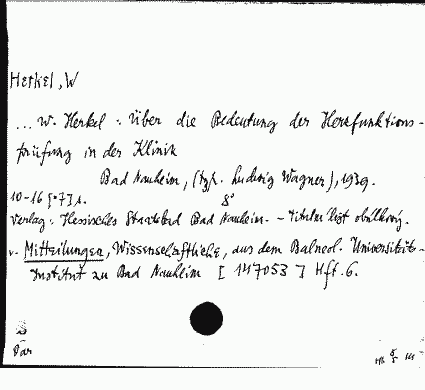 Herkel, W
... W. Herkel : Über die Bedeutung der Herzfunktions-
prüfung in der Klinik
Bad Nauheim, (typ. Ludwig Wagner), 1939.
10-16 [=7] s. 8°
Verlag: Hessisches Staatsbad Bad Nauheim. - Titulní list obálkový.
v. Mitteilungen, Wissenschaftliche, aus dem Balneol. Universitäts-
Institut zu Bad Nauheim [147053] Hft. 6.
Dar